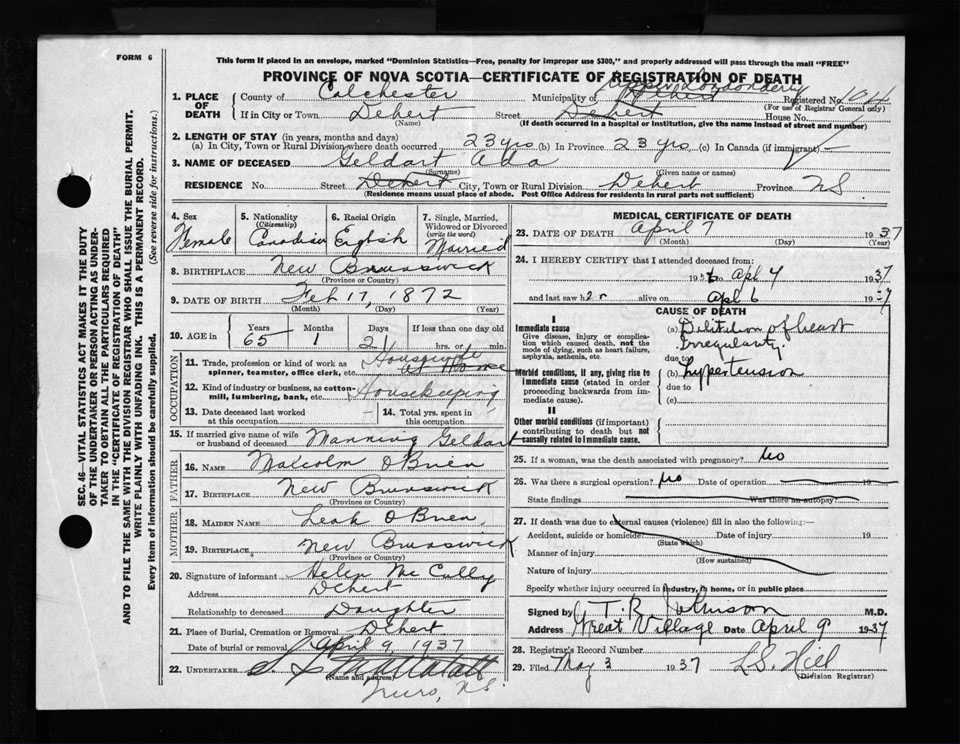 FORM 6
This form if placed in an envelope, marked "Dominion Statistics—Free, penalty for improper use $300," and properly addressed will pass through the mail "FREE"
PROVINCE OF NOVA SCOTIA—CERTIFICATE OF REGISTRATION OF DEATH
1. PLACE OF DEATH
County of Colchester Municipality of Upper Londonderry Registered No. 104
(For use of Registrar General only)
If in City or Town Debert Street Debert House No.
(Name) (If death occurred in a hospital or institution, give the name instead of street and number)
2. LENGTH OF STAY (in years, months and days)
(a) In City, Town or Rural Division where death occurred 23 yrs (b) In Province 23 yrs (c) In Canada (if immigrant) —
3. NAME OF DECEASED Geldart Ada
(Surname) (Given name or names)
RESIDENCE No. Street Debert City, Town or Rural Division Debert Province NS
(Residence means usual place of abode. Post Office Address for residents in rural parts not sufficient)
4. Sex Female
5. Nationality (Citizenship) Canadian
6. Racial Origin English
7. Single, Married, Widowed or Divorced (write the word) Married
8. BIRTHPLACE New Brunswick
(Province or Country)
9. DATE OF BIRTH Feb 17, 1872
(Month) (Day) (Year)
10. AGE in Years Months Days If less than one day old
65 1 21 hrs. or min.
OCCUPATION
11. Trade, profession or kind of work as spinner, teamster, office clerk, etc. Housewife at Home
12. Kind of industry or business, as cotton-mill, lumbering, bank, etc. Housekeeping
13. Date deceased last worked at this occupation
14. Total yrs. spent in this occupation
15. If married give name of wife or husband of deceased Manning Geldart
FATHER
16. NAME Malcolm O Brien
17. BIRTHPLACE New Brunswick
(Province or Country)
MOTHER
18. MAIDEN NAME Leah O Brien
19. BIRTHPLACE New Brunswick
(Province or Country)
20. Signature of informant Helen McCully
Address Debert
Relationship to deceased Daughter
21. Place of Burial, Cremation or Removal Debert
Date of burial or removal April 9, 1937
22. UNDERTAKER
(Name and address)
Truro, N.S.
MEDICAL CERTIFICATE OF DEATH
23. DATE OF DEATH April 7 1937
(Month) (Day) (Year)
24. I HEREBY CERTIFY that I attended deceased from:
193 to Apl 4 1937
and last saw her alive on Apl 6 1937
CAUSE OF DEATH
I
Immediate cause
Give disease, injury or complication which caused death, not the mode of dying, such as heart failure, asphyxia, asthenia, etc.
(a) Dilitation of heart
Irregularity
due to
Morbid conditions, if any, giving rise to immediate cause (stated in order proceeding backwards from immediate cause).
(b) hypertension
due to
(c)
II
Other morbid conditions (if important) contributing to death but not causally related to immediate cause.
25. If a woman, was the death associated with pregnancy? No
26. Was there a surgical operation? No Date of operation 19
State findings Was there an autopsy?
27. If death was due to external causes (violence) fill in also the following:—
Accident, suicide or homicide Date of injury 19
(State which)
Manner of injury
(How sustained)
Nature of injury
Specify whether injury occurred in industry, in home, or in public place
Signed by T. R. Johnson M.D.
Address Great Village Date April 9 1937
28. Registrar's Record Number
29. Filed May 3 1937 L.S. Hill
(Division Registrar)
SEC. 46—VITAL STATISTICS ACT MAKES IT THE DUTY
OF THE UNDERTAKER OR PERSON ACTING AS UNDER-
TAKER TO OBTAIN ALL THE PARTICULARS REQUIRED
IN THE "CERTIFICATE OF REGISTRATION OF DEATH"
AND TO FILE THE SAME WITH THE DIVISION REGISTRAR WHO SHALL ISSUE THE BURIAL PERMIT.
WRITE PLAINLY WITH UNFADING INK. THIS IS A PERMANENT RECORD.
Every item of information should be carefully supplied. (See reverse side for instructions.)